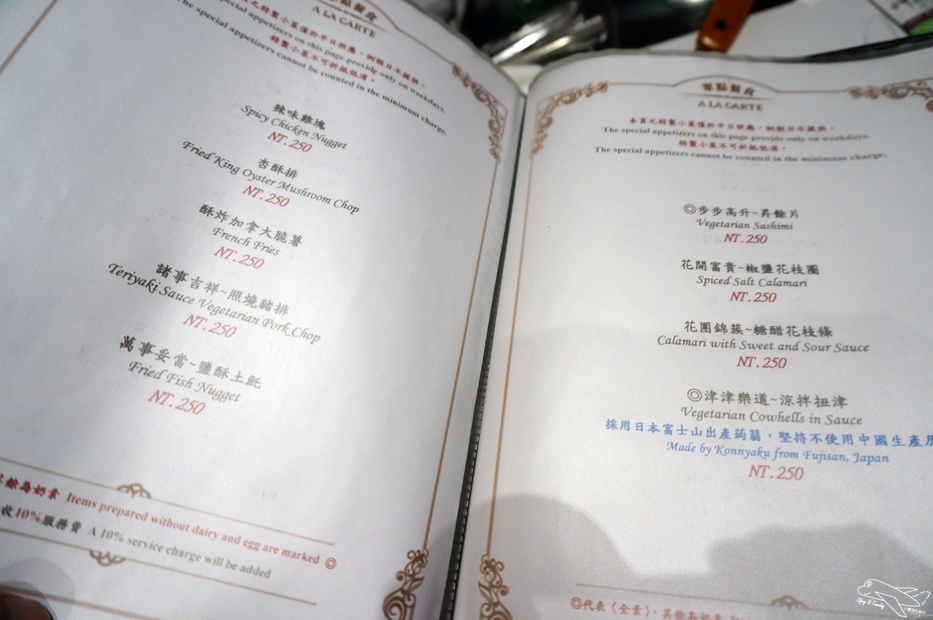 單點餐食
A LA CARTE
頁之特製小菜僅於平日供應，例假日不提供。
The special appetizers on this page provide only on weekdays.
特製小菜不可折抵低消。
The special appetizers cannot be counted in the minimum charge.
辣味雞塊
Spicy Chicken Nugget
NT.250
杏酥排
Fried King Oyster Mushroom Chop
NT.250
酥炸加拿大脆薯
French Fries
NT.250
諸事吉祥~照燒豬排
Teriyaki Sauce Vegetarian Pork Chop
NT.250
萬事妥當~鹽酥土魠
Fried Fish Nugget
NT.250
餘為奶素 Items prepared without dairy and egg are marked ◎
收10%服務費 A 10% service charge will be added
單點餐食
A LA CARTE
本頁之特製小菜僅於平日供應，例假日不提供。
The special appetizers on this page provide only on weekdays.
特製小菜不可折抵低消。
The special appetizers cannot be counted in the minimum charge.
◎步步高升~昇餘片
Vegetarian Sashimi
NT.250
花開富貴~椒鹽花枝圈
Spiced Salt Calamari
NT.250
花團錦簇~糖醋花枝條
Calamari with Sweet and Sour Sauce
NT.250
◎津津樂道~涼拌扭津
Vegetarian Cowhells in Sauce
採用日本富士山出產蒟蒻，堅持不使用中國生產
Made by Konnyaku from Fujisan, Japan
NT.250
◎代表〈全素〉，其餘為奶素